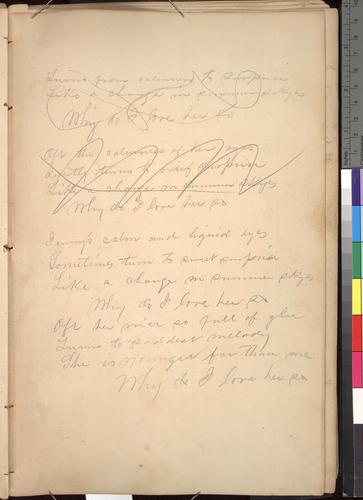 Turns from calmness to surprise
Like a change in summer skyes
Why do I love her so
Oft the calmness of her eyes
Sweetly turns to surprise
Like a change in summer skyes
Why do I love her so
Jenny's calm and liquid eyes
Sometimes turn to sweet surprise
Like a change in summer skyes
Why do I love her so
Oft her voice so full of glee
Turns to saddest melody
She is younger far than me
Why do I love her so